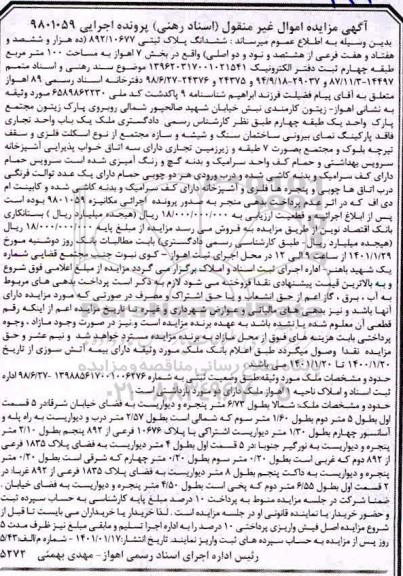 آگهی مزایده اموال غیر منقول (اسناد رهنی) پرونده اجرایی ۹۸۰۱۰۵۹
بدین وسیله به اطلاع عموم میرساند : ششدانگ پلاک ثبتی ۸۹۲/۱۰۶۷۷ (ده هزار و ششصد و
هفتاد و هفت فرعی از هشتصد و نود و دو اصلی) واقع در بخش ۷ اهواز به مساحت ۱۰۰ متر مربع
طبقه چهارم ثبت دفتر الکترونیک ۱۳۹۶۲۰۳۱۷۰۰۱۰۲۱۵۴۱ موضوع سند رهنی و اسناد متمم
۱۴۴۹۷-۸۷/۱۱/۳ و ۲۹۰۳۷-۹۴/۹/۱۸ و ۲۴۳۷۵ و ۲۴۳۷۶-۹۸/۶/۲۷ دفترخانه اسناد رسمی ۸۹ اهواز
متعلق به آقای پیام فضیلت فرزند ابراهیم شناسنامه ۹ پاکدشت کد ملی ۶۵۸۹۸۶۲۲۳۰ مورد وثیقه
به نشانی اهواز- زیتون کارمندی نبش خیابان شهید صالحپور شمالی روبروی پارک زیتون مجتمع
پارک واحد یک طبقه چهارم طبق نظر کارشناس رسمی دادگستری ملک یک باب واحد تجاری
فاقد پارکینگ نمای بیرونی ساختمان سنگ و شیشه و سازه مجتمع از نوع اسکلت فلزی و سقف
تیرچه بلوک و مجتمع بصورت ۷ طبقه و زیرزمین تجاری دارای سه اتاق خواب پذیرایی آشپزخانه
سرویس بهداشتی و حمام کف واحد سرامیک و بدنه گچ و رنگ آمیزی شده است سرویس حمام
دارای کف سرامیک و بدنه کاشی شده و درب ورودی هر دو چوبی حمام دارای یک عدد توالت فرنگی
درب اتاق ها چوبی و پنجره ها فلزی و آشپزخانه دارای کف سرامیک و بدنه کاشی شده و کابینت ام
دی اف که در اثر عدم پرداخت بدهی منجر به صدور پرونده اجرائی مکانیزه ۹۸۰۱۰۵۹ بوده است
پس از ابلاغ اجرائیه و قطعیت ارزیابی به ۱۸/۰۰۰/۰۰۰/۰۰۰ ریال (هیجده میلیارد ریال ) بستانکاری
بانک اقتصاد نوین از طریق مزایده به فروش می رسد مزایده از مبلغ پایه ۱۸/۰۰۰/۰۰۰/۰۰۰ ریال
(هیجده میلیارد ریال) طبق کارشناسی رسمی دادگستری) بابت مطالبات بانک روز دوشنبه مورخ
۱۴۰۱/۱/۲۹ از ساعت ۹ الی ۱۲ در محل اجرای ثبت اهواز - کوی نبوت جنب مجتمع قضایی شماره
یک شهید باهنر - اداره اجرای ثبت اسناد و املاک برگزار می گردد مزایده از مبلغ اعلامی فوق شروع
و به بالاترین قیمت پیشنهادی نقدا فروخته می شود لازم به ذکر است پرداخت بدهی های مربوط
به آب ، برق ، گاز اعم از حق انشعاب و یا حق اشتراک و مصرف در صورتی که مورد مزایده دارای
آنها باشد و نیز بدهی های مالیاتی و عوارض شهرداری و غیره تا تاریخ مزایده اعم از اینکه رقم
قطعی آن معلوم شده یا نشده باشد به عهده برنده مزایده است و نیز در صورت وجود مازاد ، وجوه
پرداختی بابت هزینه های فوق از محل مازاد به برنده مزایده مسترد خواهد شد و نیم عشر و حق
مزایده نقدا وصول میگردد طبق اعلام بانک ملک مورد وثیقه دارای بیمه آتش سوزی از تاریخ
۱۴۰۰/۱/۲۰ تا ۱۴۰۱/۱/۲۰ می باشد
حدود و مشخصات ملک مورد وثیقه طبق وضعیت ثبتی به شماره ۱۳۹۸۸۵۶۱۷۰۰۱۰۰۶۲۷۶-۹۸/۶/۲۷ اداره
ثبت اسناد و املاک ناحیه ۱ اهواز ملک دارای دو مورد بازداشت است
حدود و مشخصات ملک: شمالا بطول ۶/۷۳ متر پنجره و دیواریست به فضای خیابان شرقا در ۵ قسمت
اول بطول ۵ متر دوم بطول ۱/۶۰ متر سوم که شمالی است بطول ۲/۵۷ متر درب و دیواریست به راه پله و
آسانسور چهارم بطول ۱/۳۰ متر دیواریست اشتراکی با پلاک ۱۰۶۷۶ فرعی از ۸۹۲ پنجم بطول ۲/۱۰ متر
پنجره و دیواریست به نورگیر جنوبا در ۵ قسمت اول بطول ۴ متر دیواریست به فضای پلاک ۱۸۳۵ فرعی
از ۸۹۲ دوم که غربی است بطول ۰/۲۰ متر سوم بطول ۰/۲۰ متر چهارم که شرقی است بطول ۰/۲۰ متر
پنجره و دیواریست به داکت پنجم بطول ۸ متر دیواریست به فضای پلاک ۱۸۳۵ فرعی از ۸۹۲ غربا: در
۲ قسمت اول بطول ۶/۵۵ متر دوم که پخی است بطول ۴/۵۰ متر پنجره و دیواریست به فضای خیابان .
ضمنا شرکت در جلسه مزایده منوط به پرداخت ۱۰ درصد مبلغ پایه کارشناسی به حساب سپرده ثبت
و حضور خریدار یا نماینده قانونی او در جلسه مزایده است . لذا خریدار یا خریداران می بایست تا قبل از
شروع مزایده اصل فیش واریزی پرداختی ۱۰ درصد را به اداره اجرا تسلیم و مابقی مبلغ نیز ظرف مدت ۵
روز پس از مزایده به حساب سپرده های ثبت واریز نمایند. تاریخ انتشار: ۱۴۰۱/۰۱/۱۷ - شماره م الف: ۵/۴۳
رئیس اداره اجرای اسناد رسمی اهواز- مهدی بهمئی ۵۲۷۲